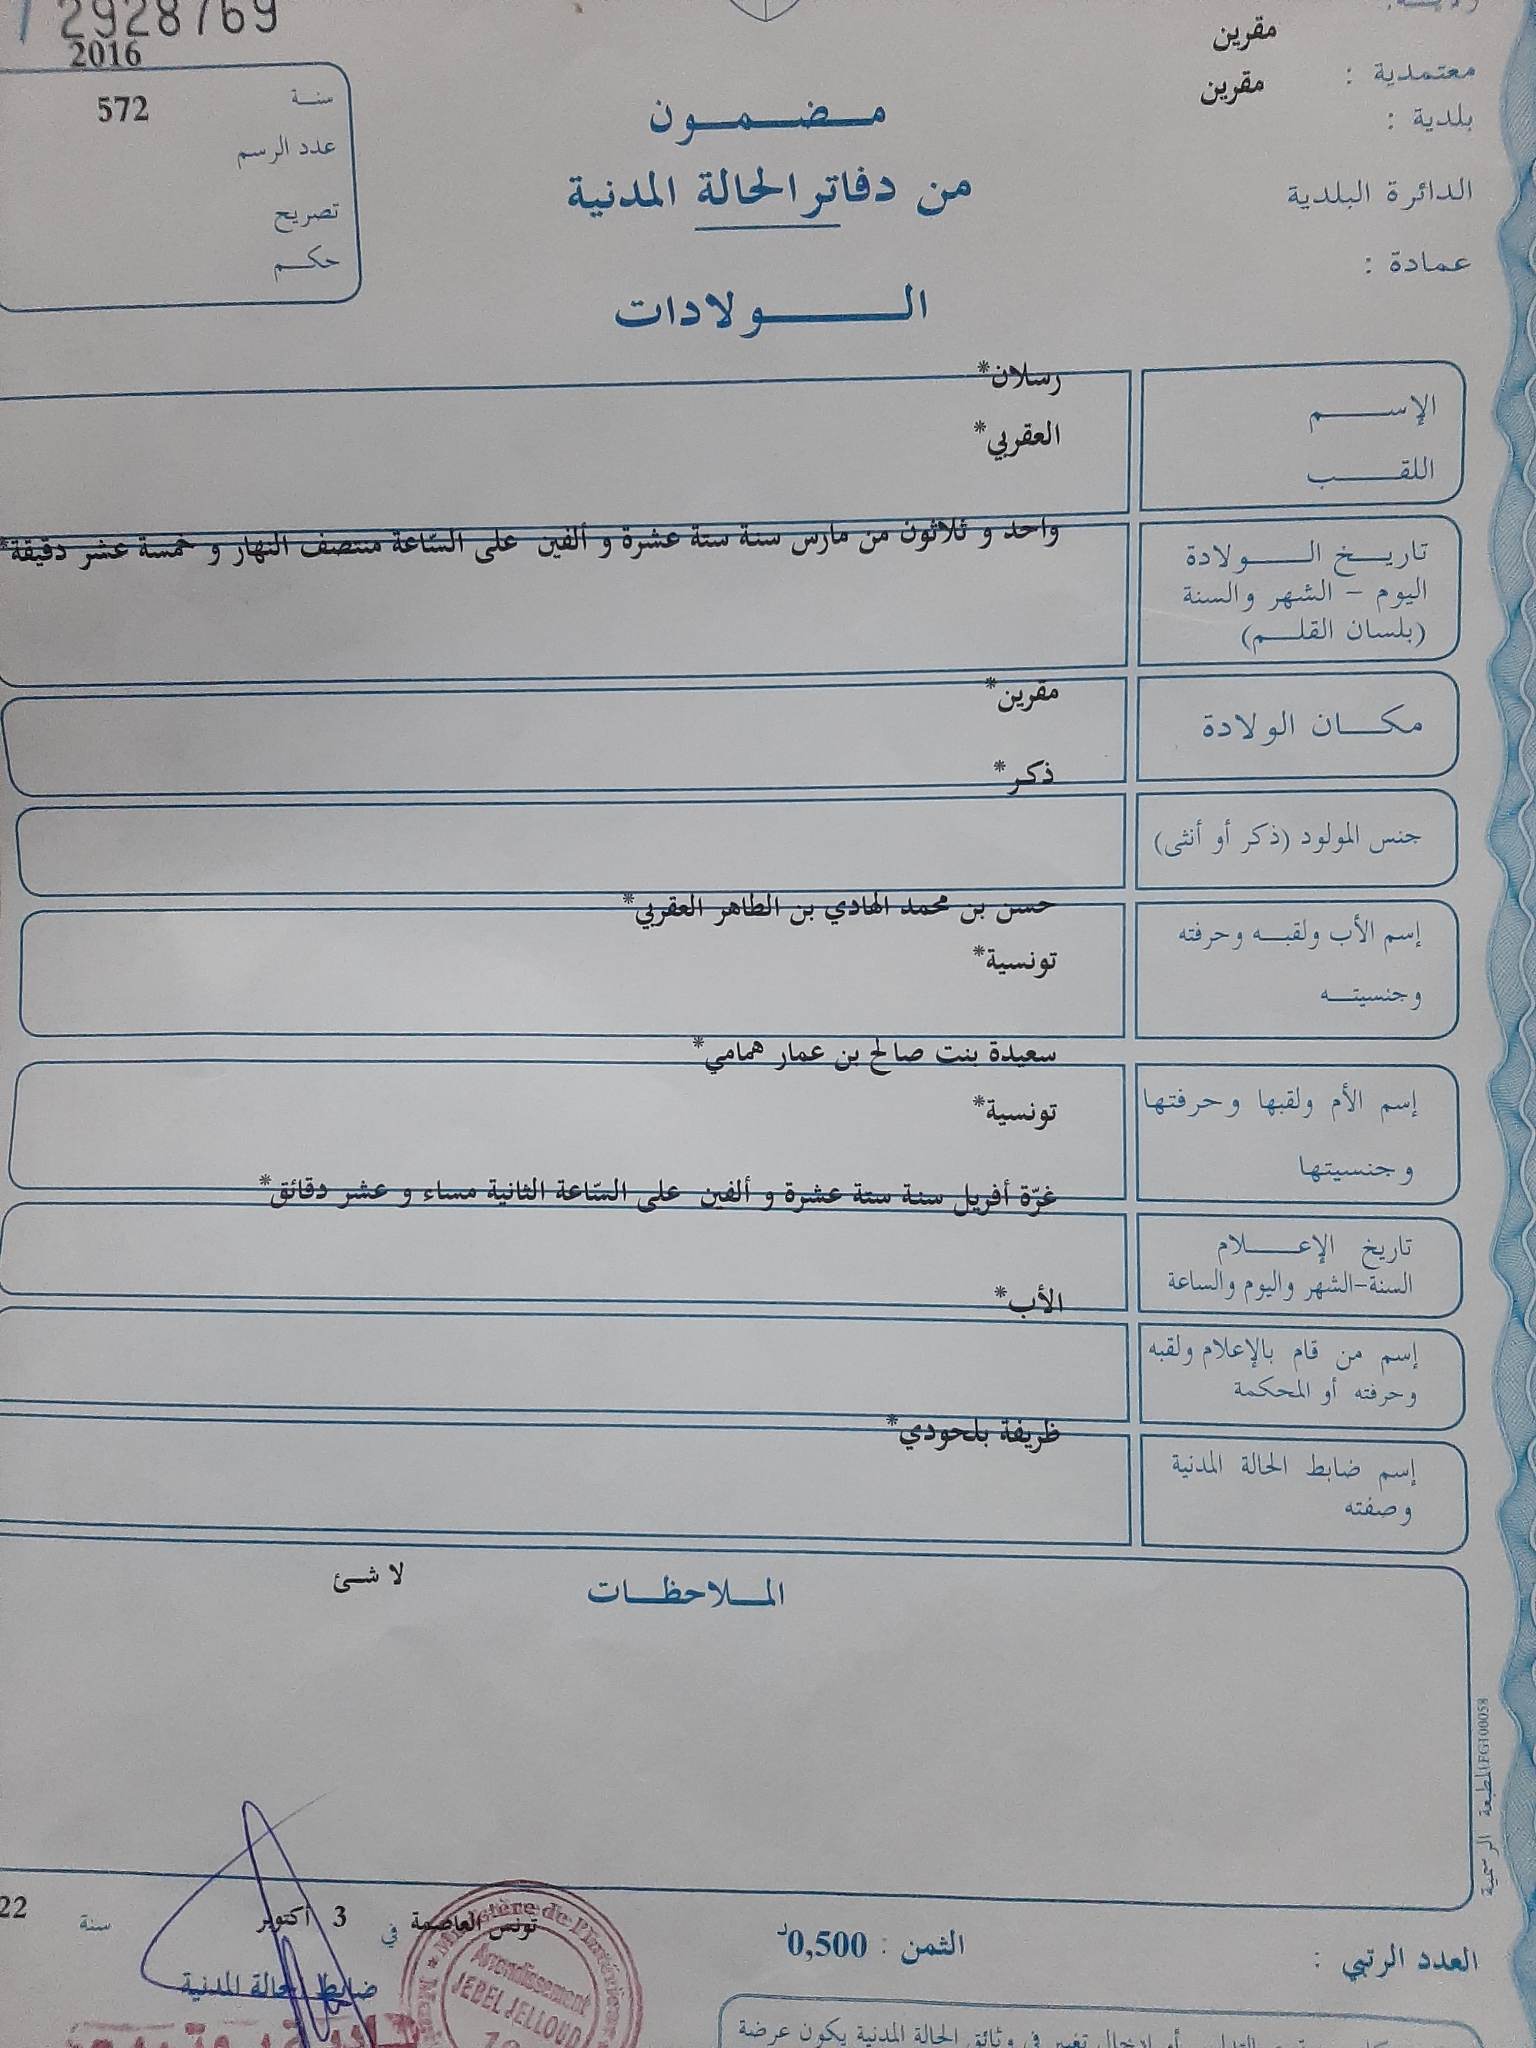 2928769
2016
سنة
572
عدد الرسم
تصريح
حكم
مقرين
معتمدية :
مقرين
بلدية :
الدائرة البلدية
عمادة :
مضمون
من دفاتر الحالة المدنية
الولادات
الإسم
رسلان*
اللقب
العقربي*
تاريخ الولادة
اليوم - الشهر والسنة
(بلسان القلم)
واحد و ثلاثون من مارس سنة ستة عشرة و ألفين على السّاعة منتصف النهار و خمسة عشر دقيقة*
مكان الولادة
مقرين*
جنس المولود (ذكر أو أنثى)
ذكر*
إسم الأب ولقبه وحرفته
وجنسيته
حسن بن محمد الهادي بن الطاهر العقربي*
تونسية*
إسم الأم ولقبها وحرفتها
وجنسيتها
سعيدة بنت صالح بن عمار همامي*
تونسية*
تاريخ الإعلام
السنة-الشهر واليوم والساعة
غرّة أفريل سنة ستة عشرة و ألفين على السّاعة الثانية مساء و عشر دقائق*
إسم من قام بالإعلام ولقبه
وحرفته أو المحكمة
الأب*
إسم ضابط الحالة المدنية
وصفته
ظريفة بلحودي*
الملاحظات
لا شئ
المطبعة الرسمية FG100058
العدد الرتبي :
الثمن : 0,500د
تونس العاصمة في 3 أكتوبر سنة 22
ضابط الحالة المدنية
Ministère de l'Intérieur
Arrondissement
JEBEL JELLOUD